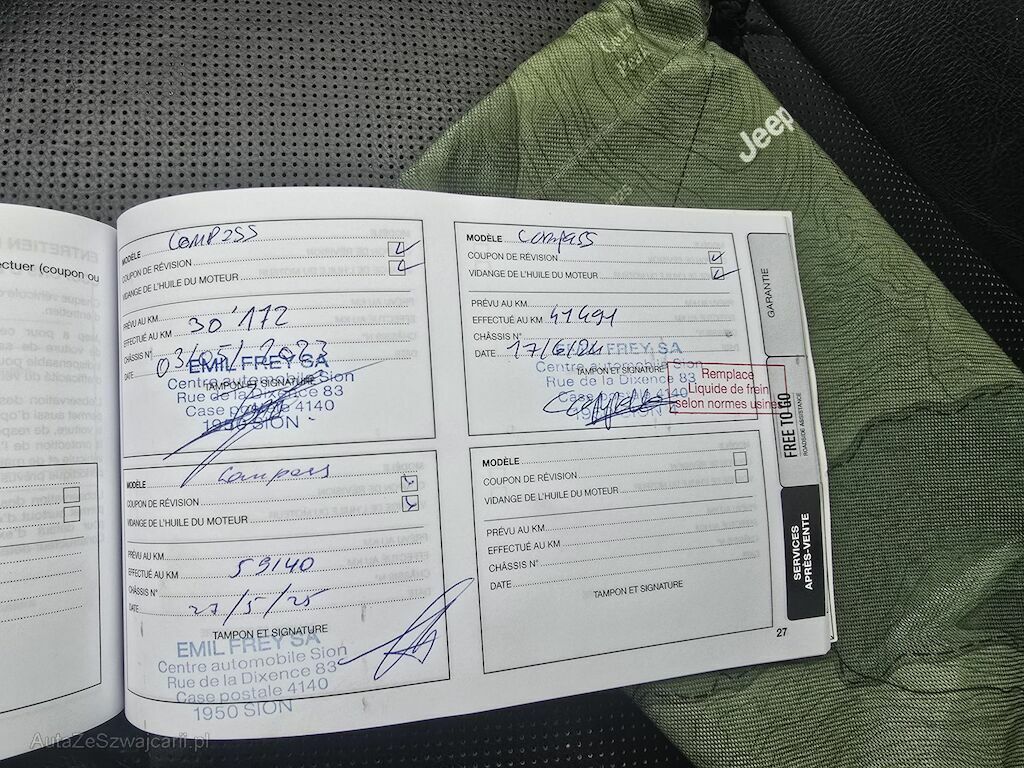 Jeep
ectuer (coupon ou
MODÈLE COMPASS
COUPON DE RÉVISION
VIDANGE DE L'HUILE DU MOTEUR
PRÉVU AU KM
EFFECTUÉ AU KM 30'172
CHÂSSIS N°
DATE 03/05/2023
TAMPON ET SIGNATURE
EMIL FREY SA
Centre automobile Sion
Rue de la Dixence 83
Case postale 4140
1950 SION
MODÈLE COMPASS
COUPON DE RÉVISION
VIDANGE DE L'HUILE DU MOTEUR
PRÉVU AU KM
EFFECTUÉ AU KM 41491
CHÂSSIS N°
DATE 17/6/24
TAMPON ET SIGNATURE
EMIL FREY SA
Centre automobile Sion
Rue de la Dixence 83
Case postale 4140
1950 SION
Remplace
Liquide de frein
selon normes usine
MODÈLE Compass
COUPON DE RÉVISION
VIDANGE DE L'HUILE DU MOTEUR
PRÉVU AU KM
EFFECTUÉ AU KM 59140
CHÂSSIS N°
DATE 27/5/25
TAMPON ET SIGNATURE
EMIL FREY SA
Centre automobile Sion
Rue de la Dixence 83
Case postale 4140
1950 SION
MODÈLE
COUPON DE RÉVISION
VIDANGE DE L'HUILE DU MOTEUR
PRÉVU AU KM
EFFECTUÉ AU KM
CHÂSSIS N°
DATE
TAMPON ET SIGNATURE
27
GARANTIE
FREE TO GO
ROADSIDE ASSISTANCE
SERVICES
APRÈS-VENTE
AutaZeSzwajcarii.pl